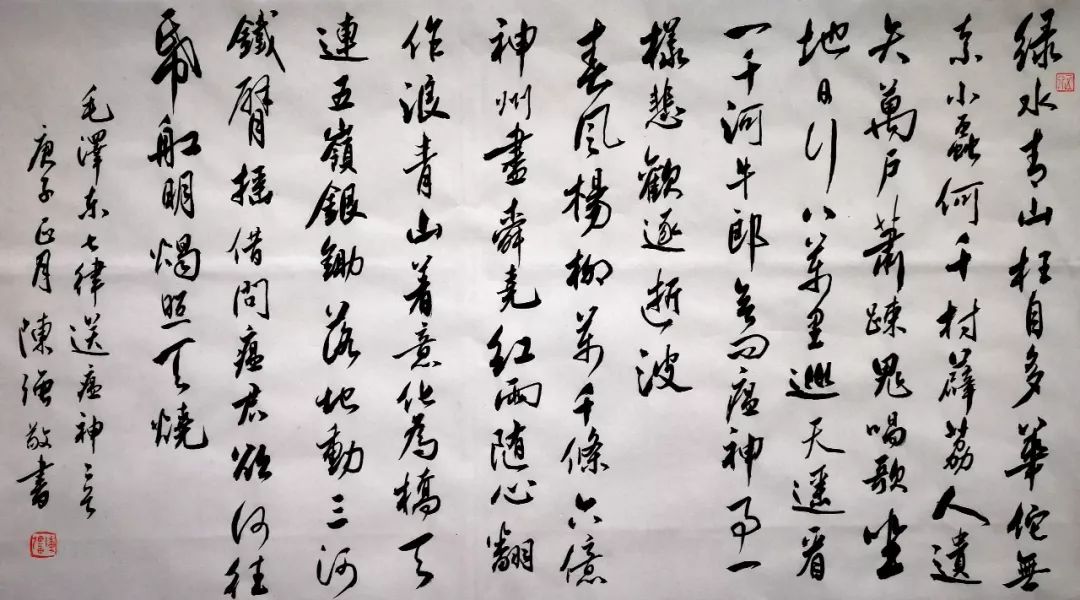 绿水青山枉自多華佗無
奈小蟲何千村薜荔人遺
矢萬户蕭疎鬼唱歌坐
地日行八萬里巡天遥看
一千河牛郎欲问瘟神事一
樣悲歡逐逝波
春風楊柳萬千條六億
神州盡舜堯红雨随心翻
作浪青山着意化為橋天
連五嶺銀鋤落地動三河
鐵臂摇借問瘟君欲何往
紙船明燭照天燒
毛澤東七律送瘟神二首
庚子正月陳强敬書